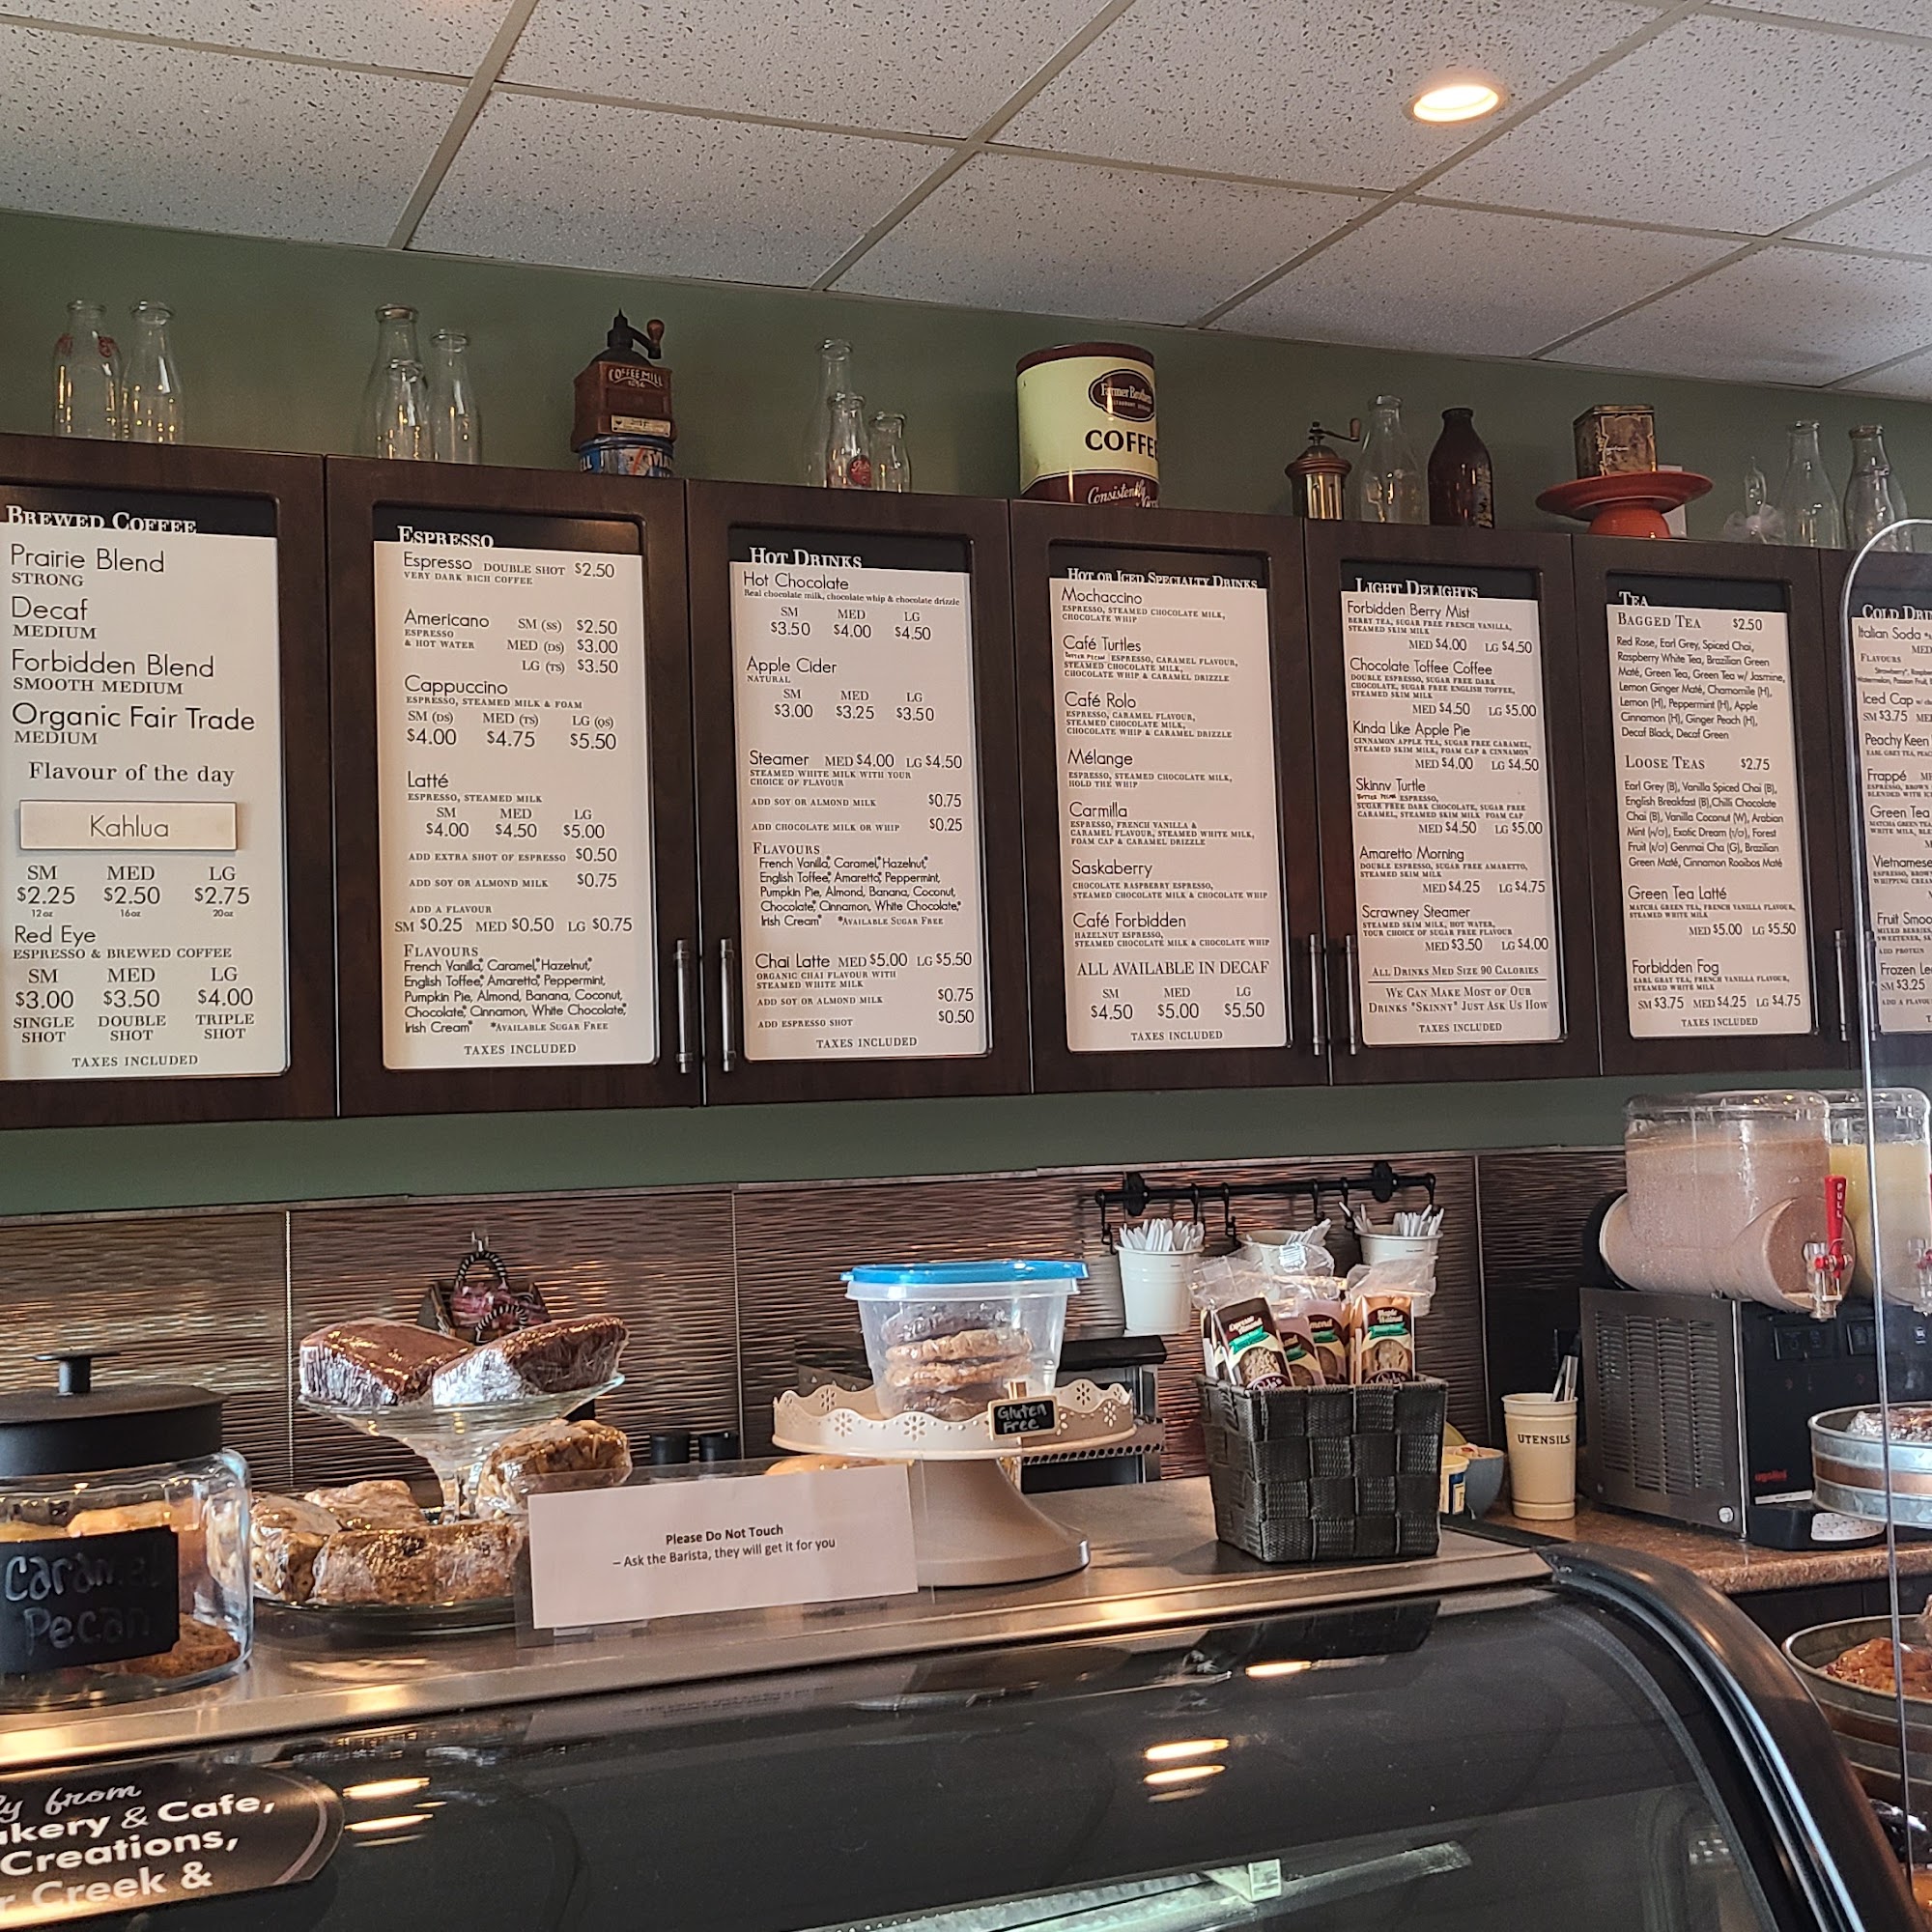 COFFEE MILL
Farmer Brothers
COFFEE
Consistently
BREWED COFFEE
Prairie Blend
STRONG
Decaf
MEDIUM
Forbidden Blend
SMOOTH MEDIUM
Organic Fair Trade
MEDIUM
Flavour of the day
Kahlua
SM MED LG
$2.25 $2.50 $2.75
12 oz 16 oz 20 oz
Red Eye
ESPRESSO & BREWED COFFEE
SM MED LG
$3.00 $3.50 $4.00
SINGLE DOUBLE TRIPLE
SHOT SHOT SHOT
TAXES INCLUDED
ESPRESSO
Espresso DOUBLE SHOT $2.50
VERY DARK RICH COFFEE
Americano SM (SS) $2.50
ESPRESSO
& HOT WATER MED (DS) $3.00
LG (TS) $3.50
Cappuccino
ESPRESSO, STEAMED MILK & FOAM
SM (DS) MED (TS) LG (QS)
$4.00 $4.75 $5.50
Latté
ESPRESSO, STEAMED MILK
SM MED LG
$4.00 $4.50 $5.00
ADD EXTRA SHOT OF ESPRESSO $0.50
ADD SOY OR ALMOND MILK $0.75
ADD A FLAVOUR
SM $0.25 MED $0.50 LG $0.75
FLAVOURS
French Vanilla,* Caramel,* Hazelnut,*
English Toffee,* Amaretto,* Peppermint,
Pumpkin Pie, Almond, Banana, Coconut,
Chocolate,* Cinnamon, White Chocolate,*
Irish Cream* *AVAILABLE SUGAR FREE
TAXES INCLUDED
HOT DRINKS
Hot Chocolate
Real chocolate milk, chocolate whip & chocolate drizzle
SM MED LG
$3.50 $4.00 $4.50
Apple Cider
NATURAL
SM MED LG
$3.00 $3.25 $3.50
Steamer MED $4.00 LG $4.50
STEAMED WHITE MILK WITH YOUR
CHOICE OF FLAVOUR
ADD SOY OR ALMOND MILK $0.75
ADD CHOCOLATE MILK OR WHIP $0.25
FLAVOURS
French Vanilla,* Caramel,* Hazelnut,*
English Toffee,* Amaretto,* Peppermint,
Pumpkin Pie, Almond, Banana, Coconut,
Chocolate,* Cinnamon, White Chocolate,*
Irish Cream* *AVAILABLE SUGAR FREE
Chai Latte MED $5.00 LG $5.50
ORGANIC CHAI FLAVOUR WITH
STEAMED WHITE MILK
ADD SOY OR ALMOND MILK $0.75
ADD ESPRESSO SHOT $0.50
TAXES INCLUDED
HOT OR ICED SPECIALTY DRINKS
Mochaccino
ESPRESSO, STEAMED CHOCOLATE MILK,
CHOCOLATE WHIP
Café Turtles
BUTTER PECAN ESPRESSO, CARAMEL FLAVOUR,
STEAMED CHOCOLATE MILK,
CHOCOLATE WHIP & CARAMEL DRIZZLE
Café Rolo
ESPRESSO, CARAMEL FLAVOUR,
STEAMED CHOCOLATE MILK,
CHOCOLATE WHIP & CARAMEL DRIZZLE
Mélange
ESPRESSO, STEAMED CHOCOLATE MILK,
HOLD THE WHIP
Carmilla
ESPRESSO, FRENCH VANILLA &
CARAMEL FLAVOUR, STEAMED WHITE MILK,
FOAM CAP & CARAMEL DRIZZLE
Saskaberry
CHOCOLATE RASPBERRY ESPRESSO,
STEAMED CHOCOLATE MILK & CHOCOLATE WHIP
Café Forbidden
HAZELNUT ESPRESSO,
STEAMED CHOCOLATE MILK & CHOCOLATE WHIP
ALL AVAILABLE IN DECAF
SM MED LG
$4.50 $5.00 $5.50
TAXES INCLUDED
LIGHT DELIGHTS
Forbidden Berry Mist
BERRY TEA, SUGAR FREE FRENCH VANILLA,
STEAMED SKIM MILK
MED $4.00 LG $4.50
Chocolate Toffee Coffee
DOUBLE ESPRESSO, SUGAR FREE DARK
CHOCOLATE, SUGAR FREE ENGLISH TOFFEE,
STEAMED SKIM MILK
MED $4.50 LG $5.00
Kinda Like Apple Pie
CINNAMON APPLE TEA, SUGAR FREE CARAMEL,
STEAMED SKIM MILK, FOAM CAP & CINNAMON
MED $4.00 LG $4.50
Skinny Turtle
BUTTER PECAN ESPRESSO,
SUGAR FREE DARK CHOCOLATE, SUGAR FREE
CARAMEL, STEAMED SKIM MILK FOAM CAP
MED $4.50 LG $5.00
Amaretto Morning
DOUBLE ESPRESSO, SUGAR FREE AMARETTO,
STEAMED SKIM MILK
MED $4.25 LG $4.75
Scrawney Steamer
STEAMED SKIM MILK, HOT WATER,
YOUR CHOICE OF SUGAR FREE FLAVOUR
MED $3.50 LG $4.00
ALL DRINKS MED SIZE 90 CALORIES
WE CAN MAKE MOST OF OUR
DRINKS "SKINNY" JUST ASK US HOW
TAXES INCLUDED
TEA
BAGGED TEA $2.50
Red Rose, Earl Grey, Spiced Chai,
Raspberry White Tea, Brazilian Green
Maté, Green Tea, Green Tea w/ Jasmine,
Lemon Ginger Maté, Chamomile (H),
Lemon (H), Peppermint (H), Apple
Cinnamon (H), Ginger Peach (H),
Decaf Black, Decaf Green
LOOSE TEAS $2.75
Earl Grey (B), Vanilla Spiced Chai (B),
English Breakfast (B),Chilli Chocolate
Chai (B), Vanilla Coconut (W), Arabian
Mint (H/G), Exotic Dream (Y/G), Forest
Fruit (H/G) Genmai Cha (G), Brazilian
Green Maté, Cinnamon Rooibos Maté
Green Tea Latté
MATCHA GREEN TEA, FRENCH VANILLA FLAVOUR,
STEAMED WHITE MILK
MED $5.00 LG $5.50
Forbidden Fog
EARL GRAY TEA, FRENCH VANILLA FLAVOUR,
STEAMED WHITE MILK
SM $3.75 MED $4.25 LG $4.75
TAXES INCLUDED
COLD
Italian Soda
MED
FLAVOURS
Iced Cap
SM $3.75
Peachy Keen
Frappé
Green Tea
Vietnamese
Fruit
ADD PROTEIN
Frozen
SM $3.25
PULL
Gluten
Free
UTENSILS
Please Do Not Touch
– Ask the Barista, they will get it for you
Caramel
Pecan
from
& Cafe,
Creations,
Creek &